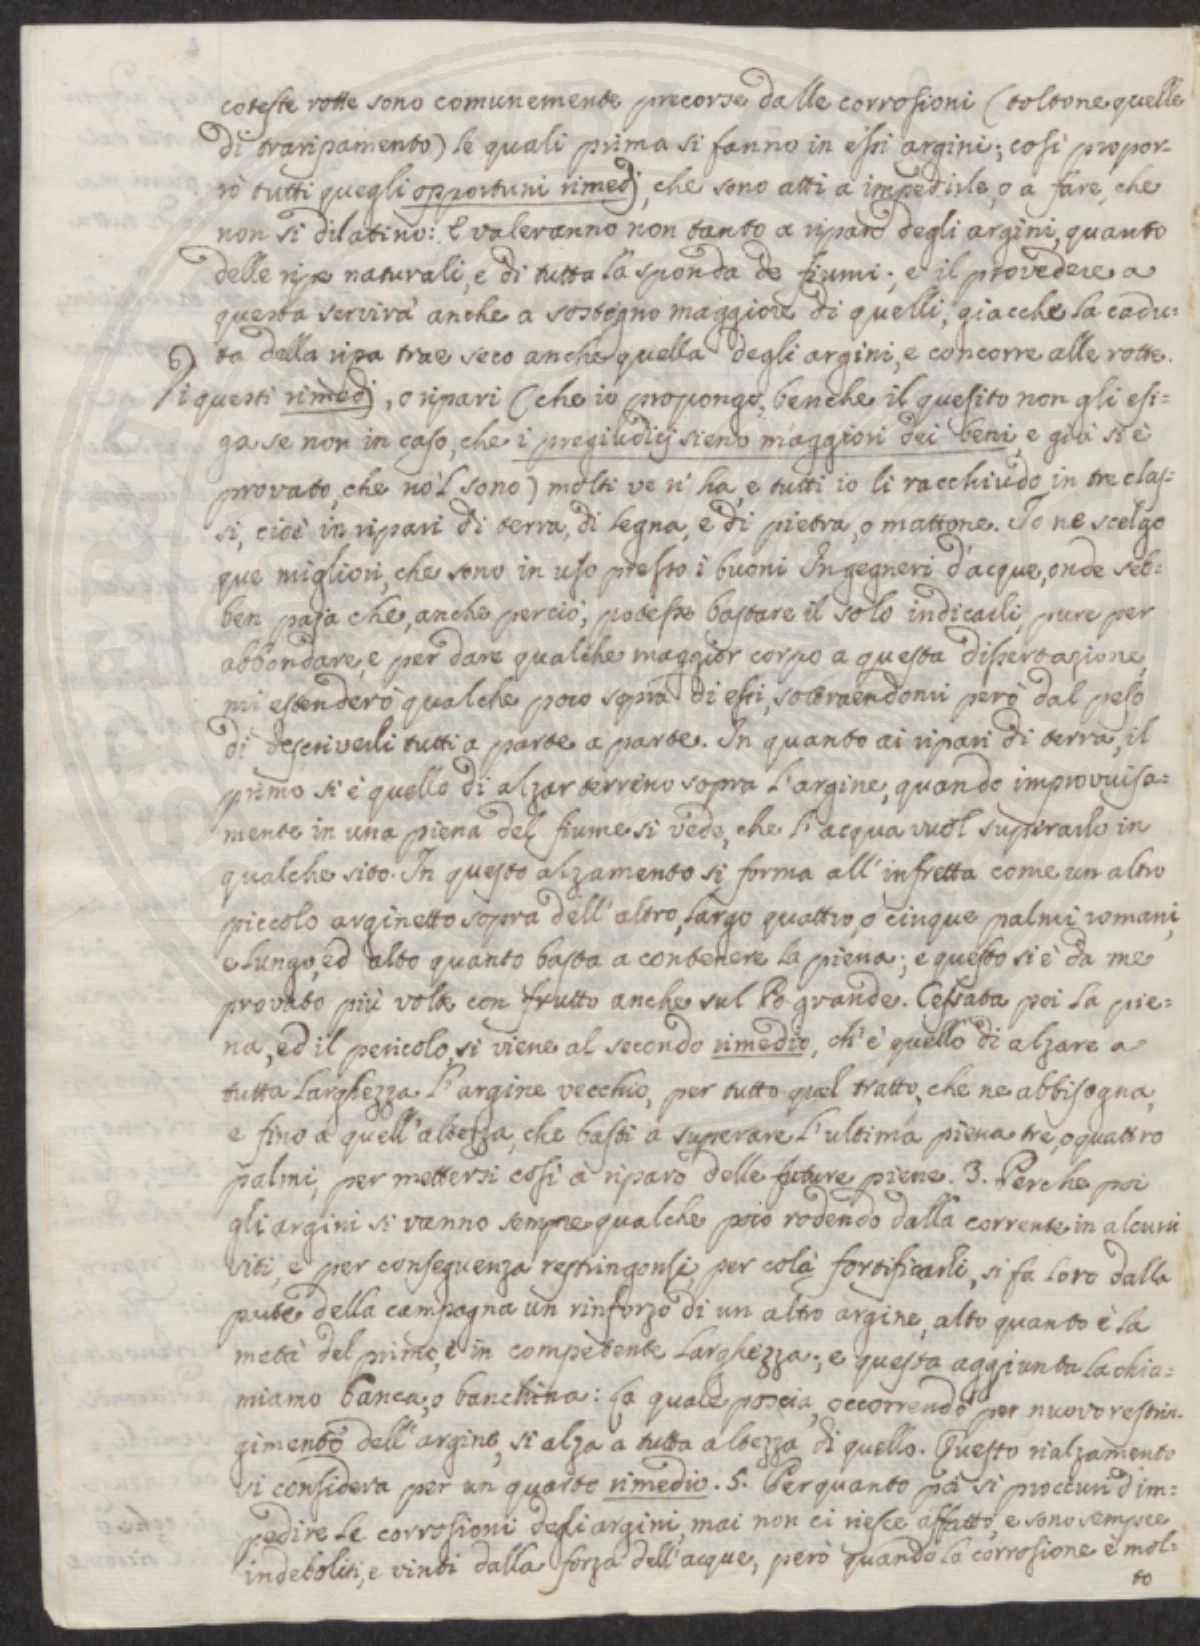 coteste rotte sono comunemente precorse dalle corrosioni (toltone quelle
di traripamento) le quali prima si fanno in essi argini; così propor-
rò tutti quegli opportuni rimedj, che sono atti a impedirle, o a fare, che
non si dilatino: E valeranno non tanto a riparo degli argini, quanto
delle ripe naturali, e di tutta la sponda de fiumi; e il provedere a
questa servirà anche a sostegno maggiore di quelli, giacche la cadu-
ta della ripa trae seco anche quella degli argini, e concorre alle rotte.
Di questi rimedj, o ripari (che io propongo, benche il quesito non gli esi=
ga se non in caso, che i pregiudicj sieno maggiori dei beni, e già si è
provato, che nol sono) molti ve n'ha, e tutti io li racchiudo in tre clas=
si, cioè in ripari di terra, di legna, e di pietra, o mattone. Io ne scelgo
que migliori, che sono in uso presso i buoni Ingegneri d'acque, onde seb=
ben paja che, anche perciò, potesse bastare il solo indicarli, pure per
abbondare, e per dare qualche maggior corpo a questa dissertazione,
mi estenderò qualche poco sopra di essi, sottraendomi però dal peso
di descriverli tutti a parte a parte. In quanto ai ripari di terra, il
primo si è quello di alzar terreno sopra l'argine, quando improvvisa=
mente in una piena del fiume si vede, che l'acqua vuol superarlo in
qualche sito. In questo alzamento si forma all'infretta come un altro
piccolo arginetto sopra dell'altro, largo quattro, o cinque palmi romani,
e lungo, ed alto quanto basta a contenere la piena; e questo si è da me
provato più volte con frutto anche sul Po grande. Cessata poi la pie=
na, ed il pericolo, si viene al secondo rimedio, ch'è quello di alzare a
tutta larghezza l'argine vecchio, per tutto quel tratto, che ne abbisogna,
e fino a quell'altezza, che basti a superare l'ultima piena tre, o quattro
palmi, per mettersi così a riparo delle future piene. 3. Perche poi
gli argini si vanno sempre qualche poco rodendo dalla corrente in alcuni
siti, e per conseguenza restringonsi, per colà fortificarli, si fa loro dalla
parte della campagna un rinforzo di un altro argine, alto quanto è la
metà del primo, e in competente larghezza; e questa aggiunta la chia=
miamo banca, o banchina: la quale poscia, occorrendo per nuovo restrin-
gimento dell'argine, si alza a tutta altezza di quello. Questo rialzamento
si considera per un quarto rimedio. 5. Per quanto poi si proccuri d'im=
pedire le corrosioni degli argini, mai non ci riesce affatto, e sono sempre
indeboliti, e vinti dalla forza dell'acque, però quando la corrosione è mol=
to